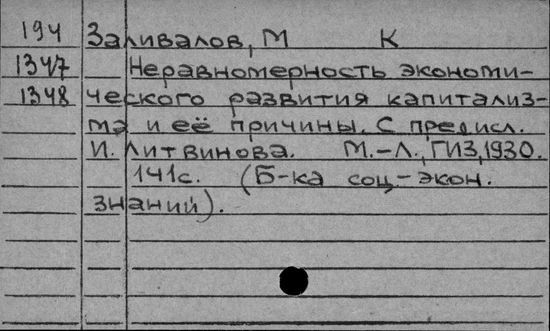 194 Заливалов, М К
1347 Неравномерность экономи-
1348 ческого развития капитализ-
ма и её причины. С предисл.
И. Литвинова. М.-Л., ГИЗ, 1930.
141с. (Б-ка соц-экон.
знаний).